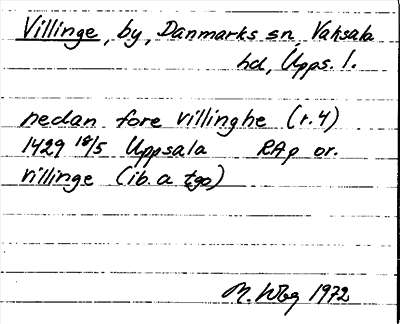 Villinge, by, Danmarks sn, Vaksala
hd, Upps. l.
nedan fore villinghe (r.4)
1429 18/5 Uppsala RAp or.
villinge (ib. a tgo)
M. Wbg 1972